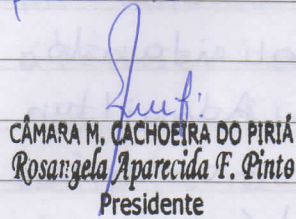 CÂMARA M. CACHOEIRA DO PIRIÁ
Rosangela Aparecida F. Pinto
Presidente